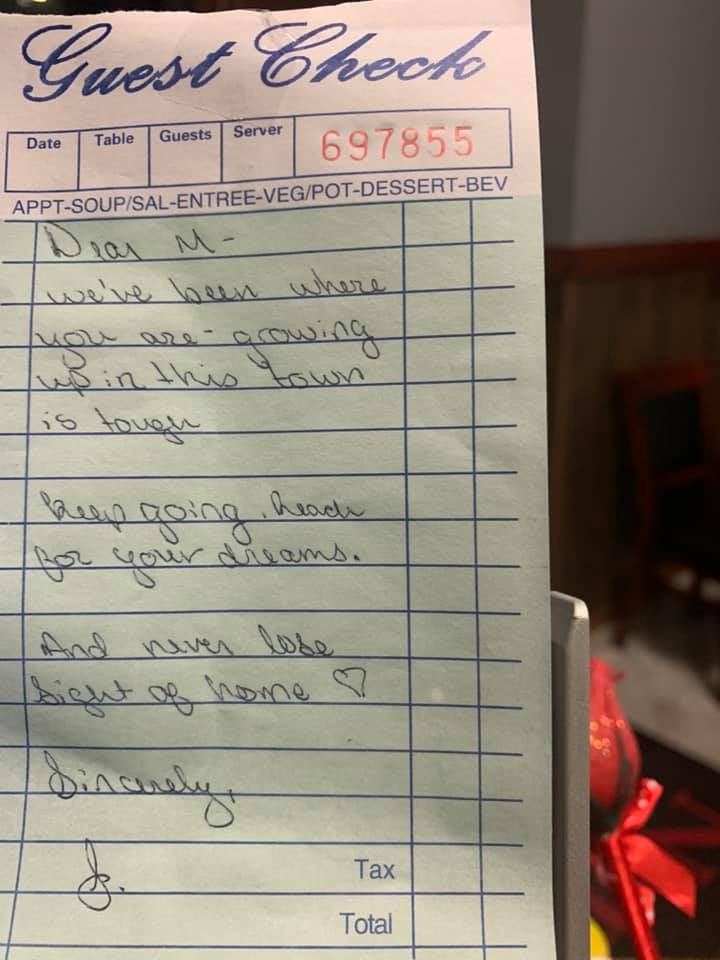 Guest Check
Date Table Guests Server 697855
APPT-SOUP/SAL-ENTREE-VEG/POT-DESSERT-BEV
Dear M-
we've been where
you are - growing
up in this town
is tough
keep going. Reach
for your dreams.
And never lose
sight of home ♡
Sincerely,
J.
Tax
Total